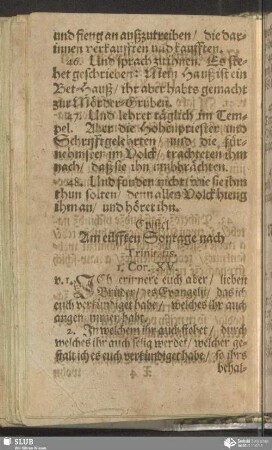 und fieng an außzutreiben / die dar-
innen verkaufften und kaufften.
46. Und sprach zu ihnen. Es ste-
het geschrieben: Mein Hauß ist ein
Bet-Hauß / ihr aber habts gemacht
zur Mörder-Gruben.
47. Und lehret täglich im Tem-
pel. Aber die Hohenpriester und
Schrifftgelehrten / und die für-
nehmsten im Volck / trachteten ihm
nach / daß sie ihn umbbrächten.
48. Und funden nicht / wie sie ihm
thun solten / denn alles Volck hieng
ihm an / und höret ihn.
Epistel
Am eilfften Sontage nach
Trinitatis.
1. Cor. XV.
v. 1. ICh erinnere euch aber / lieben
Brüder / des Evangelii / das ich
euch verkündiget habe / welches ihr auch
angenommen habt
2. In welchem ihr auch stehet / durch
welches ihr auch selig werdet / welcher ge-
stalt ich es euch verkündiget habe / so ihrs
behal-
SLUB